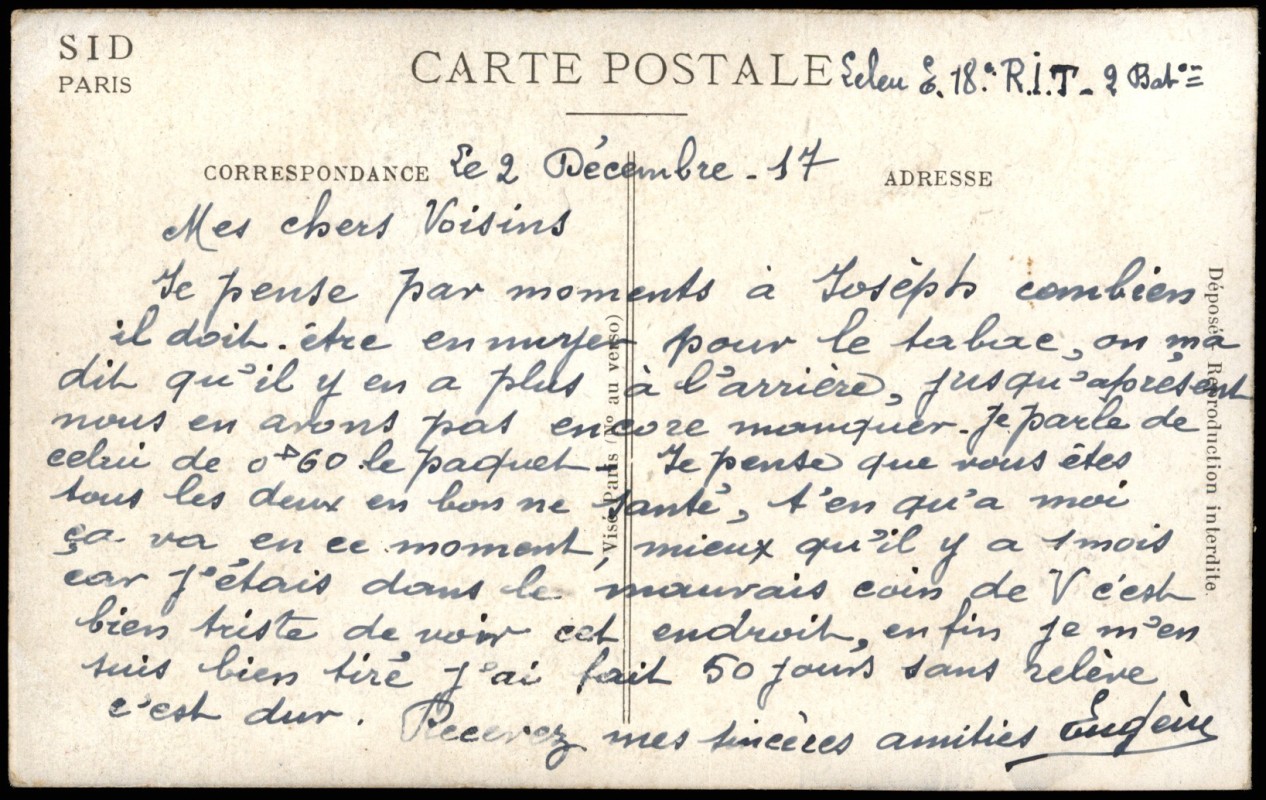 SID
PARIS
CARTE POSTALE
Leleu E. 18e R.I.T - 2 Baton
CORRESPONDANCE
ADRESSE
Le 2 Décembre - 17
Mes chers Voisins
Je pense par moments à Joséph combien
il doit être ennuyer pour le tabac, on ma
dit qu'il y en a plus à l'arrière, jusqu'aprésent
nous en avons pas encore manquer. Je parle de
celui de 0 60 le paquet - Je pense que vous êtes
tous les deux en bonne santé, t'en qu'a moi
ça va en ce moment, mieux qu'il y a 1 mois
car j'étais dans le mauvais coin de V c'est
bien triste de voir cet endroit, enfin je m'en
suis bien tiré j'ai fait 50 jours sans relève
c'est dur. Recevez mes sincères amitiés Eugène
Visé Paris (No au verso)
Déposé. Reproduction interdite.